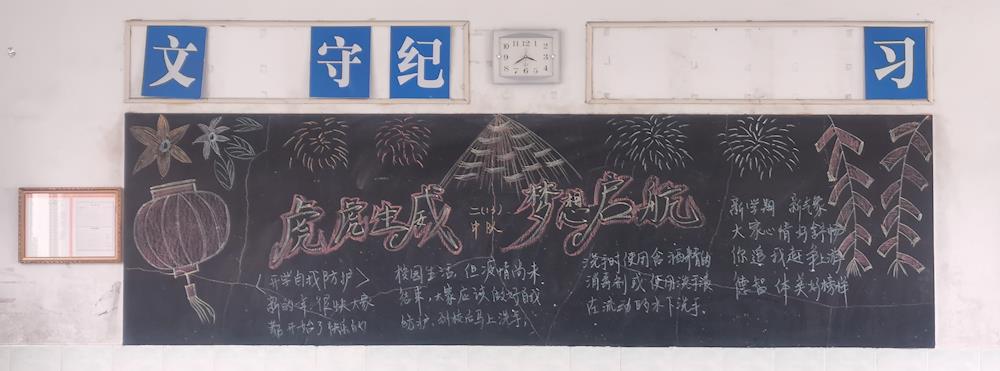 文 守 纪 习
虎虎生威
二(13)
中队
梦想启航
<开学自我防护>
新的一年很快大家
都开始了快乐的
校园生活,但疫情尚未
结束,大家应该做好自我
防护,到校后马上洗手,
洗手时使用含酒精的
消毒剂或使用洗手液
在流动的水下洗手.
新学期 新气象
大家心情好舒畅
你追我赶争上游
德智体美好榜样